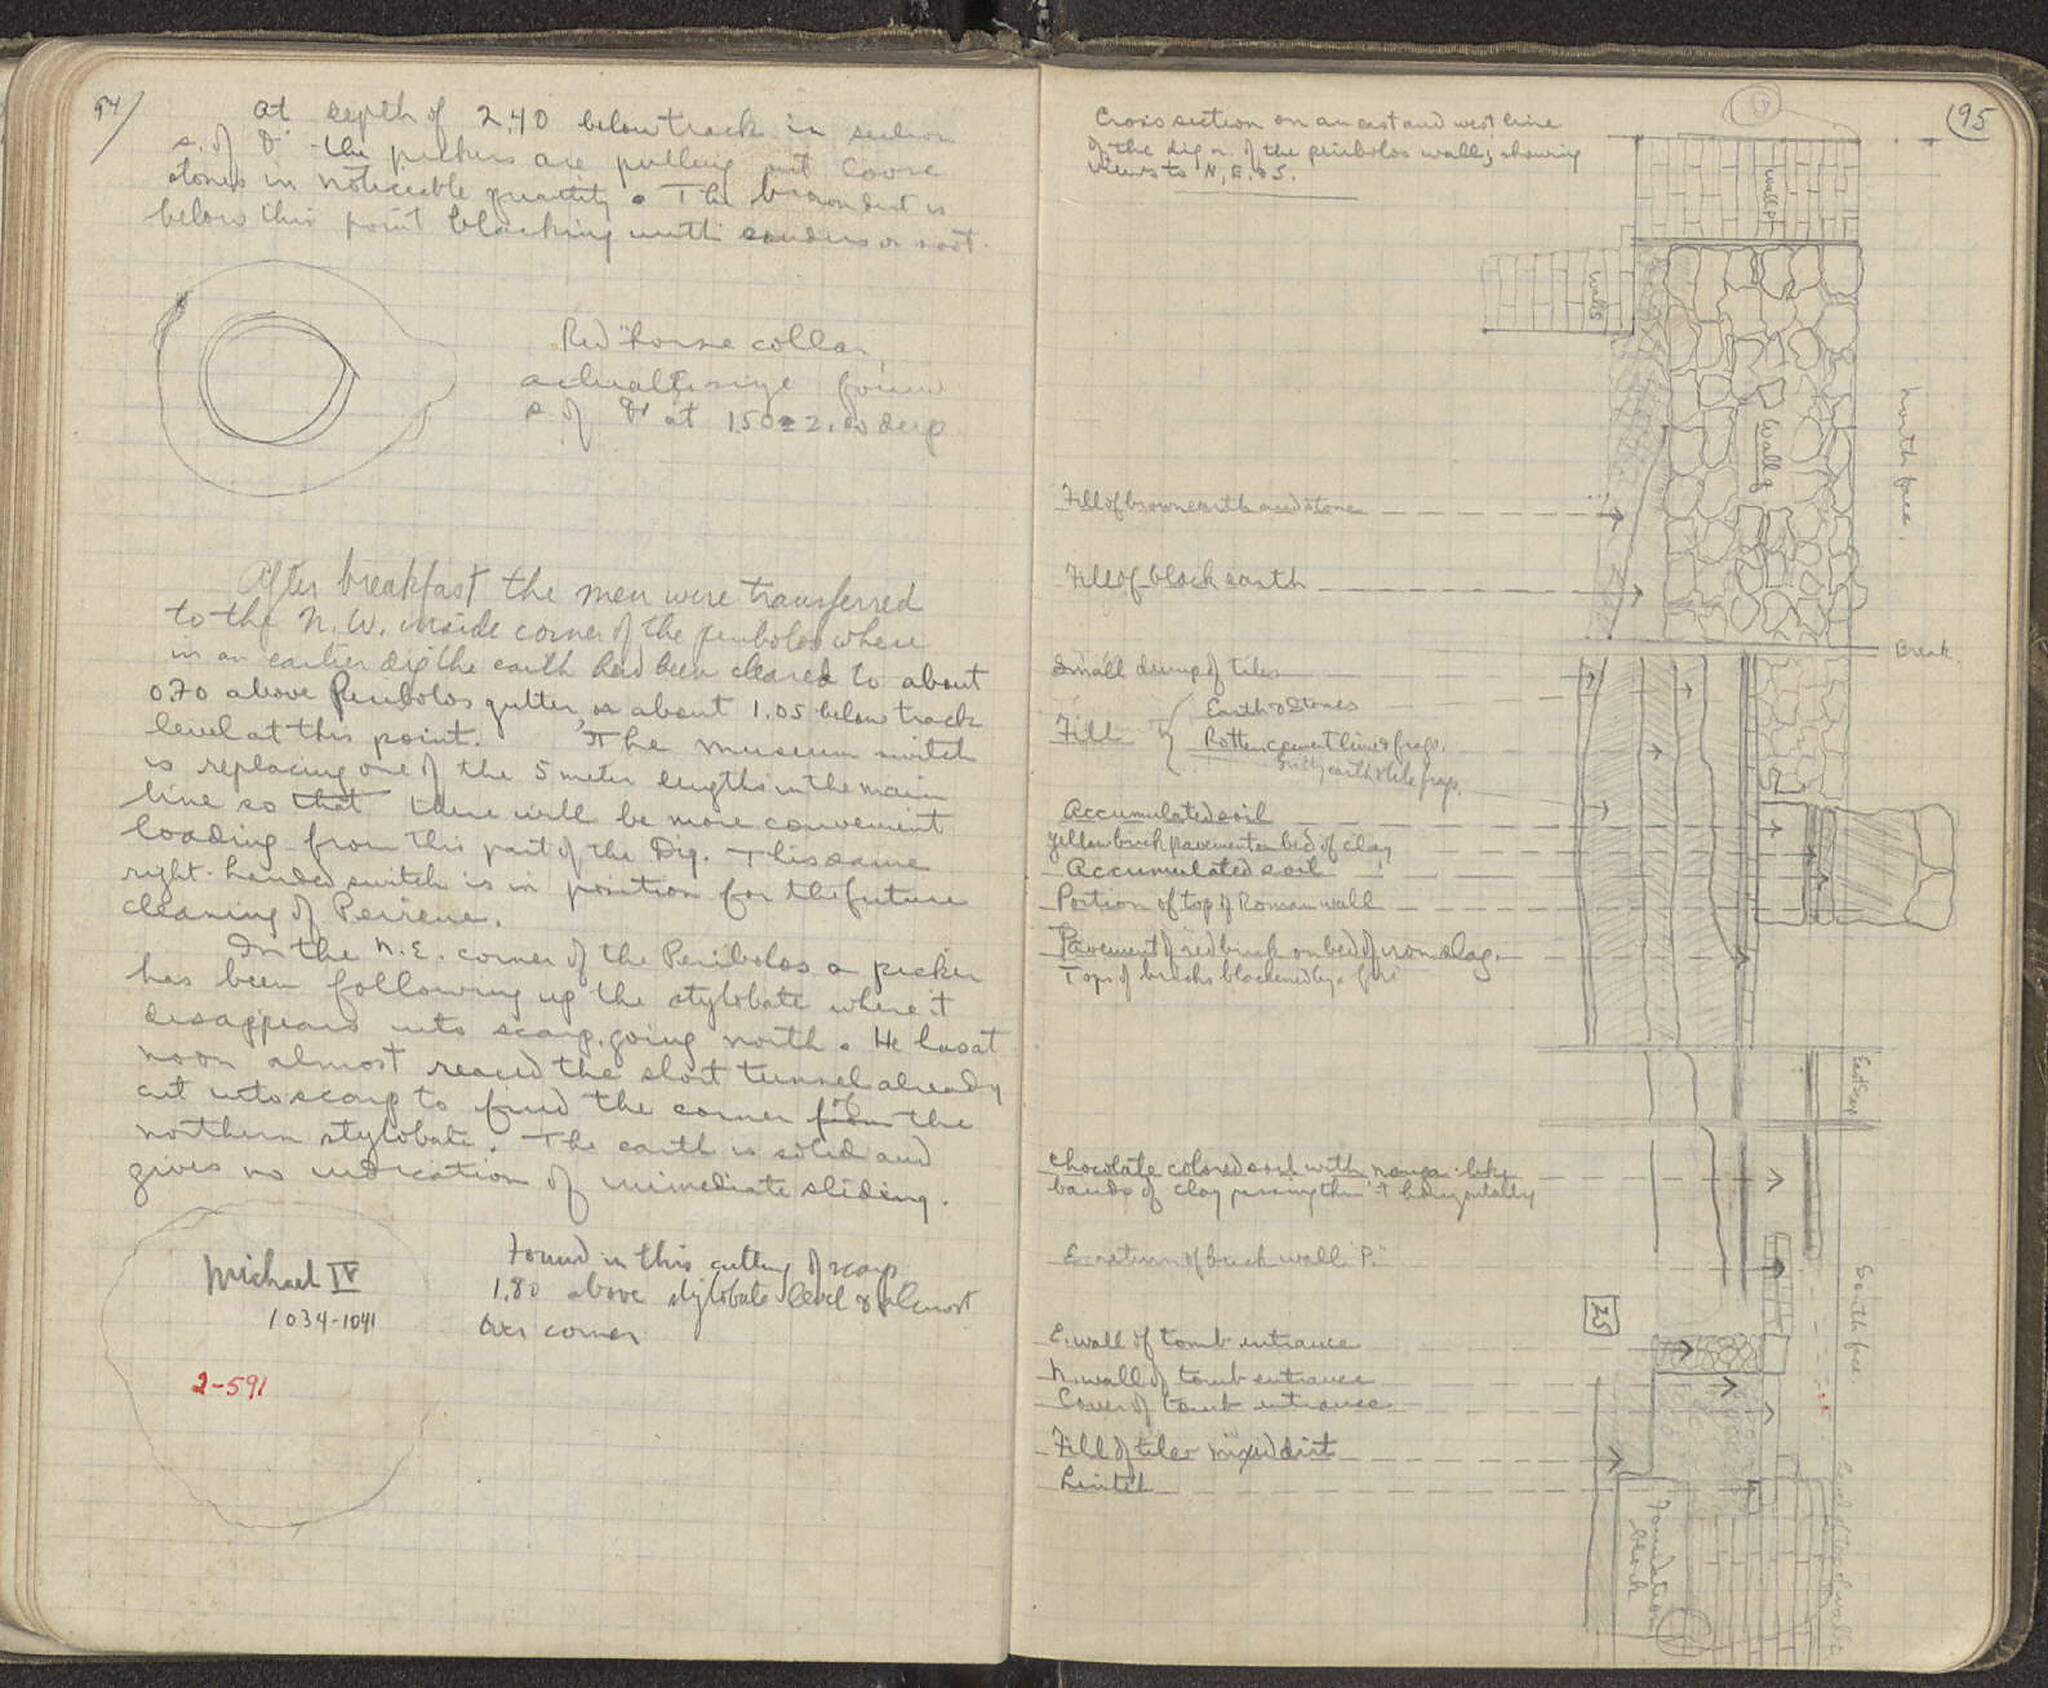 94/
At depth of 2.40 below track in section
s. of the pickers are pulling out loose
stones in noticeable quantity. The brown dirt is
below this point blacking with cinders or soot.
Red "horse collar"
actual size found
s. of at 1.50 2.00 deep
After breakfast the men were transferred
to the N.W. inside corner of the peribolos where
in an earlier dig the earth had been cleared to about
0.70 above Peribolos gutter, or about 1.05 below track
level at this point. The museum switch
is replacing one of the 5 meter lengths in the main
line so that there will be more convenient
loading from this part of the Dig. This same
right-handed switch is in position for the future
cleaning of Peirene.
In the N.E. corner of the Peribolos a picker
has been following up the stylobate where it
disappears into scarp, going north. He has at
noon almost reached the short tunnel already
cut into scarp to find the corner from of the
northern stylobate. The earth is solid and
gives no indication of immediate sliding.
Michael IV
1034-1041
2-591
Found in this cutting of scarp
1.80 above stylobate level & almost
over corner
95
Cross section on an east and west line
of the dig n. of the peribolos wall, showing
views to N, E. & S.
wall P
wall S
wall q
north face.
Fill of brown earth and stone
Fill of black earth
Break
Small dump of tiles
Fill
Earth & Stones
Rotten cement lime & frags.
earth & tile frags.
Accumulated soil
Yellow brick pavement on bed of clay
Accumulated soil
Portion of top of Roman wall
Pavement of red brick on bed of iron slag.
Tops of bricks blackened by a fire
East scarp
Chocolate colored soil with like
bands of clay passing thru it horizontally
E. return of brick wall "P."
South face
25
E. wall of tomb entrance
N. wall of tomb entrance
Cover of tomb entrance
Fill of tiles mixed dirt
Lintel
Foundation
block